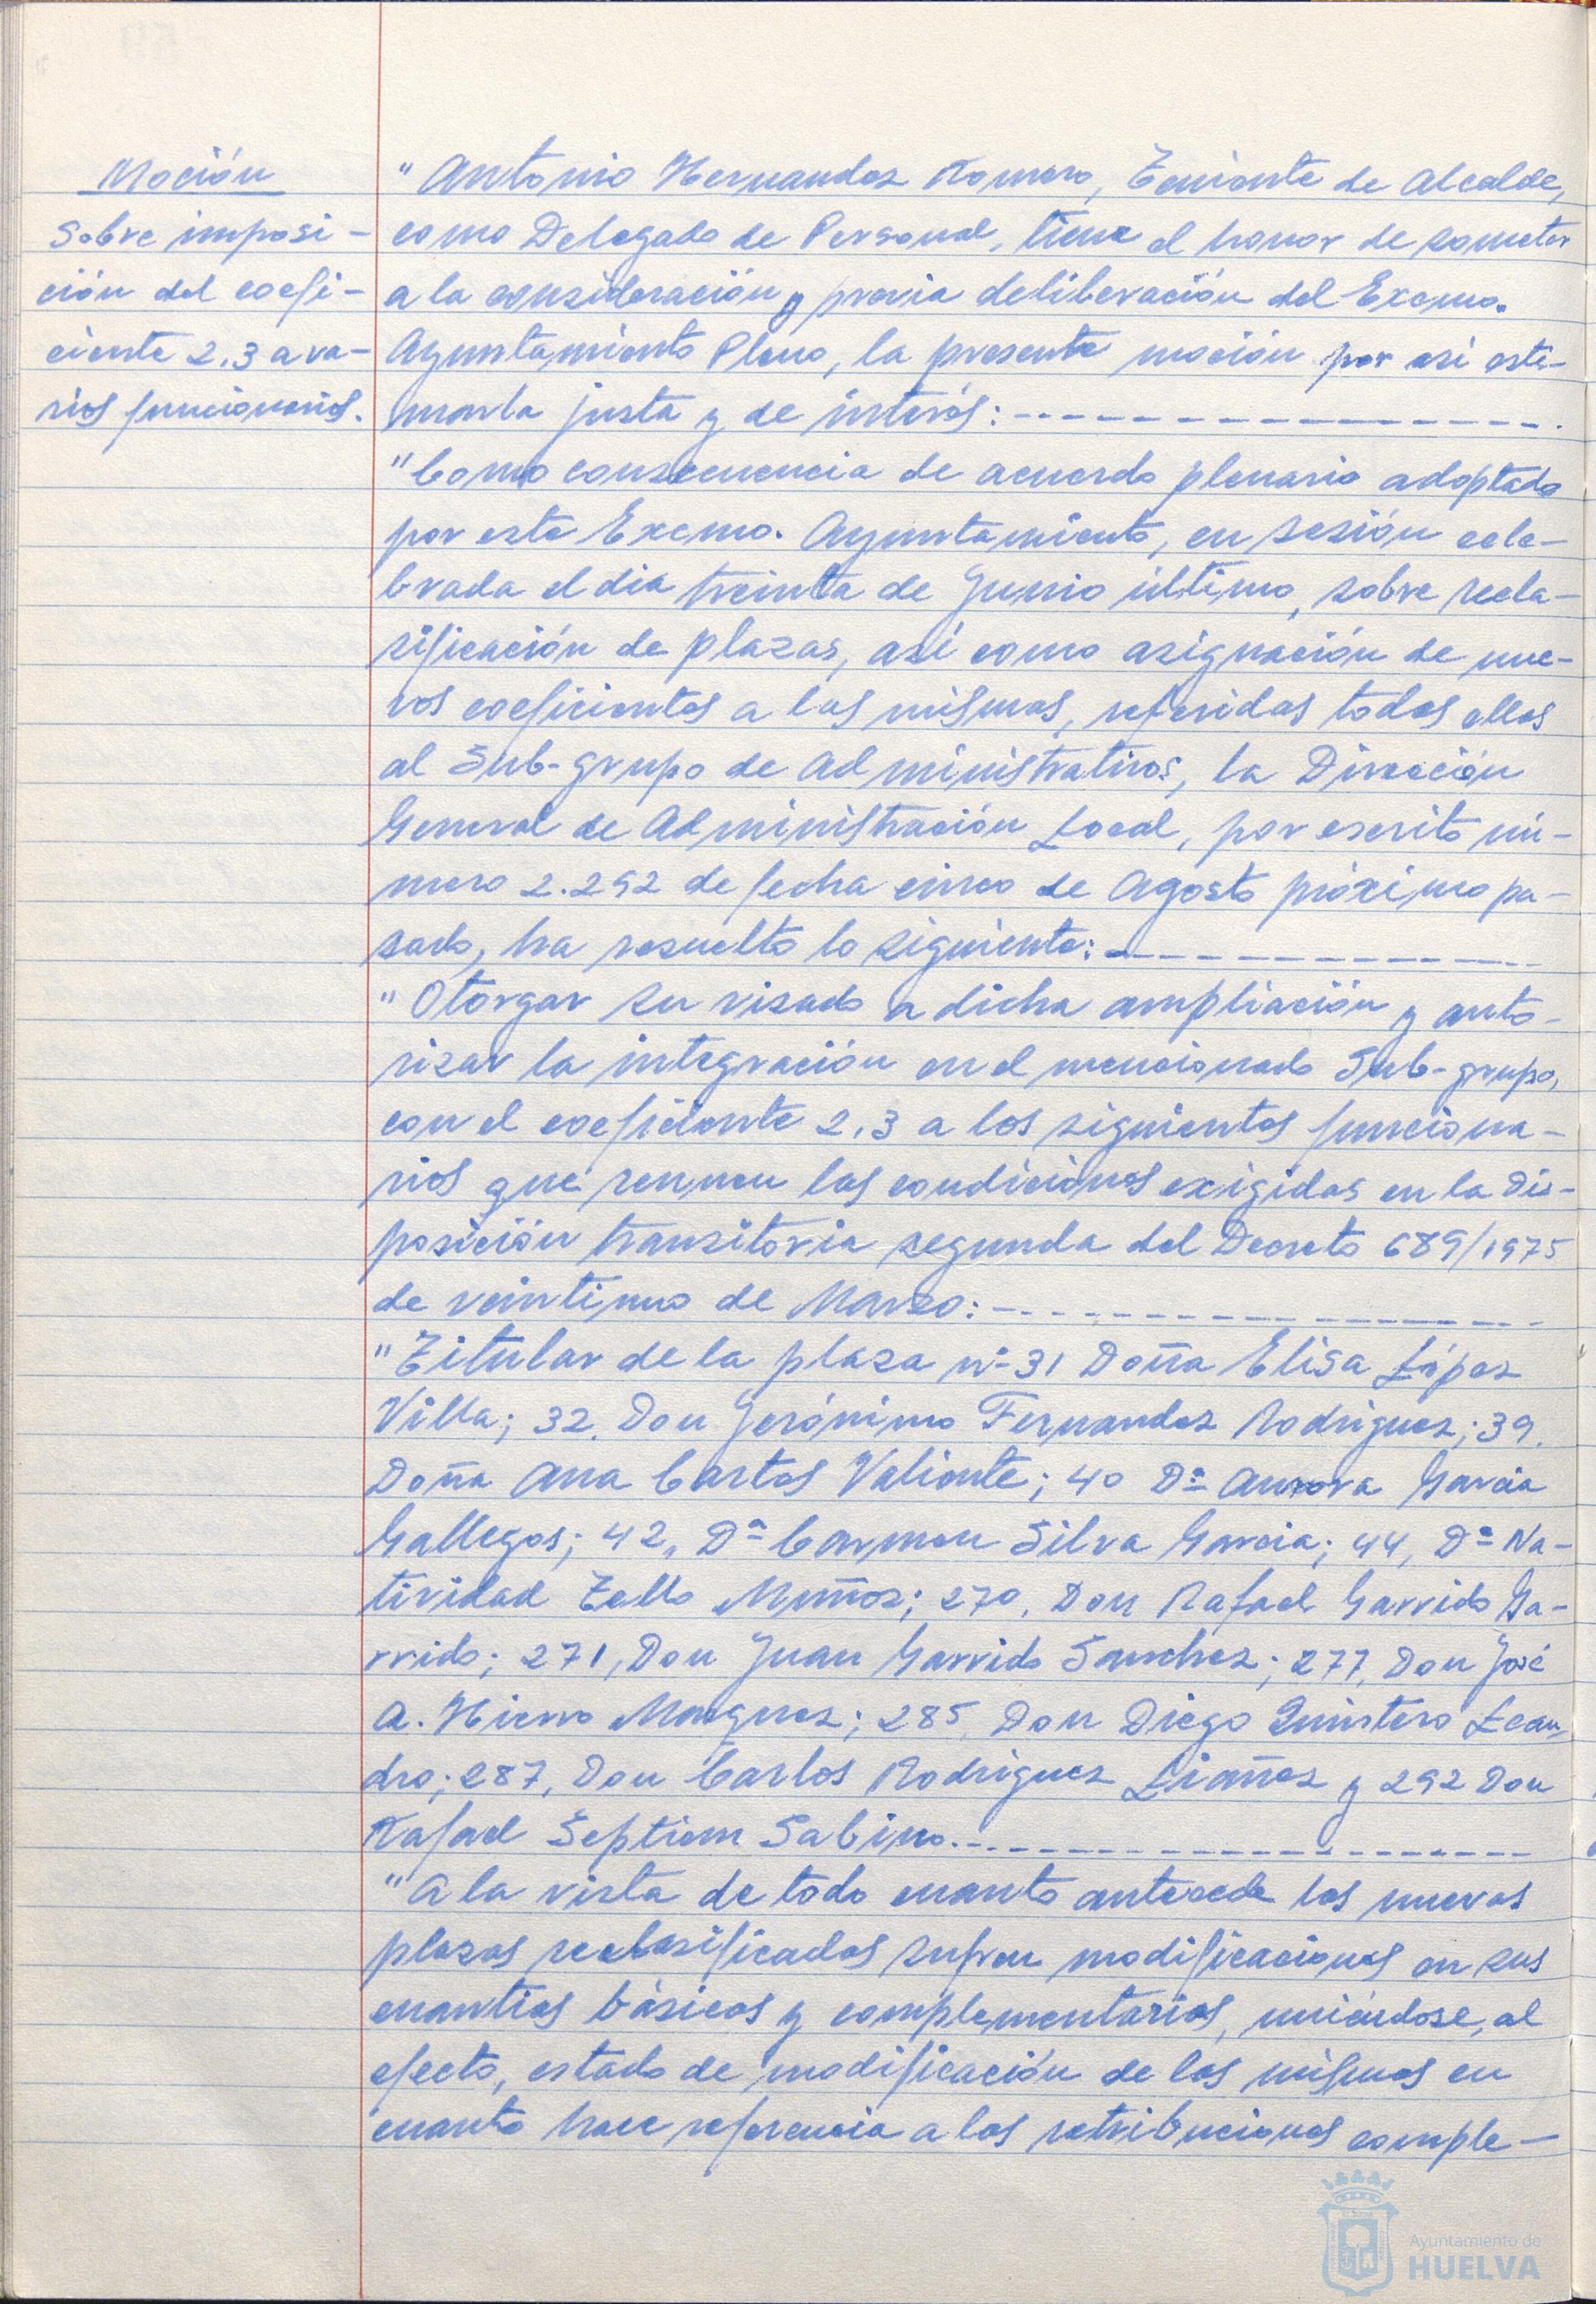 Moción
Sobre imposi-
ción del coefi-
ciente 2,3 a va-
rios funcionarios.
"Antonio Hernandez Romero, Teniente de Alcalde,
como Delegado de Personal, tiene el honor de someter
a la consideración y previa deliberación del Excmo.
Ayuntamiento Pleno, la presente moción por asi esti-
marla justa y de interés:
"Como consecuencia de acuerdo plenario adoptado
por este Excmo. Ayuntamiento, en sesión cele-
brada el dia treinta de Junio último, sobre recla-
sificación de plazas, así como asignación de nue-
vos coeficientes a las mismas, referidas todas ellas
al Sub-grupo de Administrativos, la Dirección
General de Administración Local, por escrito nú-
mero 2.292 de fecha cinco de Agosto próximo pa-
sado, ha resuelto lo siguiente:
"Otorgar su visado a dicha ampliación y auto-
rizar la integración en el mencionado Sub-grupo,
con el coeficiente 2,3 a los siguientes funciona-
rios que reunen las condiciones exigidas en la dis-
posición transitoria segunda del Decreto 689/1975
de veintiuno de Marzo:
"Titular de la plaza nº 31 Doña Elisa López
Villa; 32, Don Jerónimo Fernandez Rodriguez; 39,
Doña Ana Bartos Valiente; 40 Dª Aurora Garcia
Gallegos; 42, Dª Carmen Silva Garcia; 44, Dª Na-
tividad Tello Muñoz; 270, Don Rafael Garrido Ga-
rrido; 271, Don Juan Garrido Sanchez; 277, Don José
A. Hierro Marquez; 285, Don Diego Quintero Lean-
dro; 287, Don Carlos Rodriguez Liañez y 292 Don
Rafael Septiem Sabino.
"A la vista de todo cuanto antecede las nuevas
plazas reclasificadas sufren modificaciones en sus
cuantias básicas y complementarias, uniéndose, al
efecto, estado de modificación de las mismas en
cuanto hace referencia a las retribuciones comple-
Ayuntamiento de
HUELVA